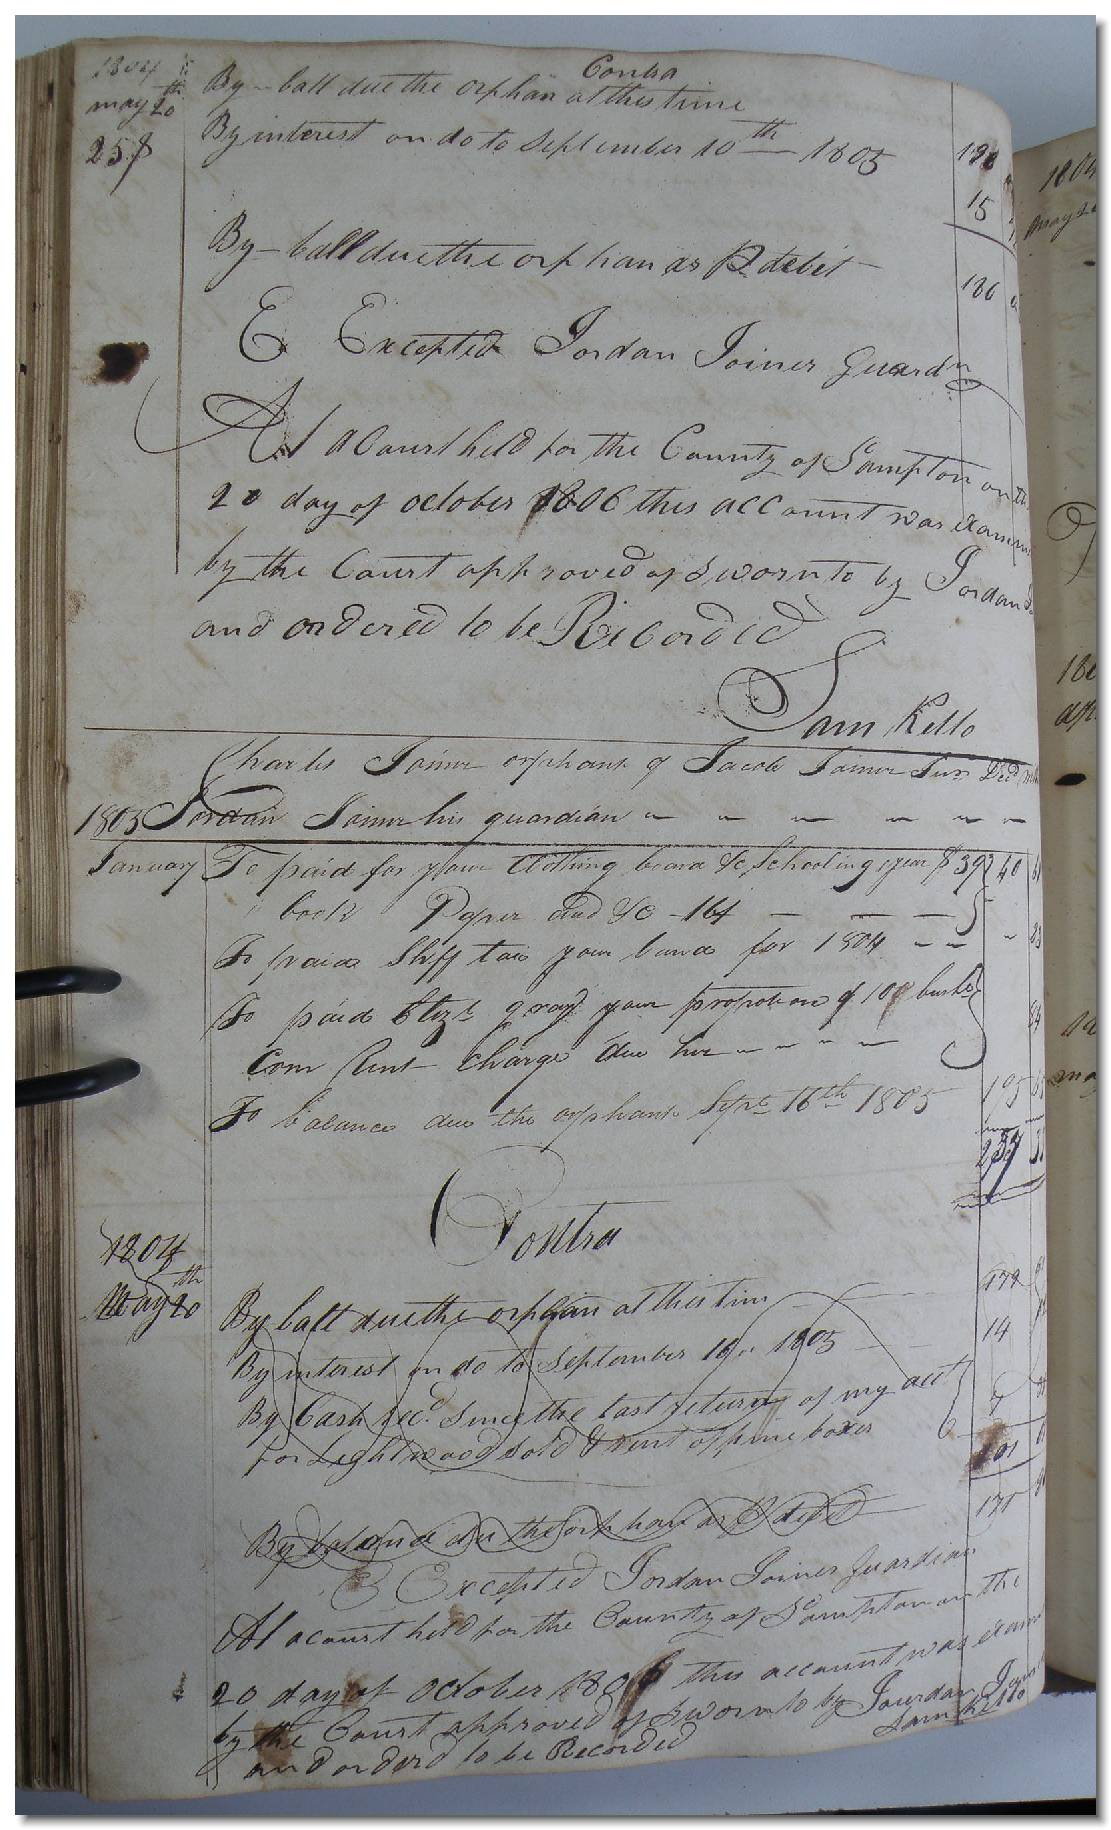 Contra
1804
may 20th By - ball due the orphan at this time
258 By interest on do to September 10th - 1805 190
15
By - ball due the orphan as P debit - 186
E Excepted Jordan Joiner Guardn
At a Court held for the County of Sompton on the
20 day of october 1806 this account was examin
by the Court approved of Sworn to by Jordan
and ordered to be Recorded
Sam Kello
Charles Joiner orphant of Jacob Joiner Jun Decd
1805 Jordan Joiner his guardian
January To paid for your Clothing board &c Schooling 1 year $ 39 40
" book Paper and &c - 164
To paid Shff tax your land for 1804
To paid Elizt gray your propotion of 10 bushs
Corn Rent Charge due her
To balance due the orphant Sept 16th 1805 195
237
Contra
1804
May 20th By ball due the orphan at this time 172
By interest on do to September 10 - 1805 14
By Cash recd Since the last return of my acct
for Lightwood sold & rent of pine boxes
By balance due the orphan as P debit 171
E Excepted Jordan Joiner Guardian
At a court held for the County of So ampton on the
20 day of october 1806 this account was exam
by the Court approved of Sworn to by Jourdan
and orderd to be Recorded Sam Kello
1804